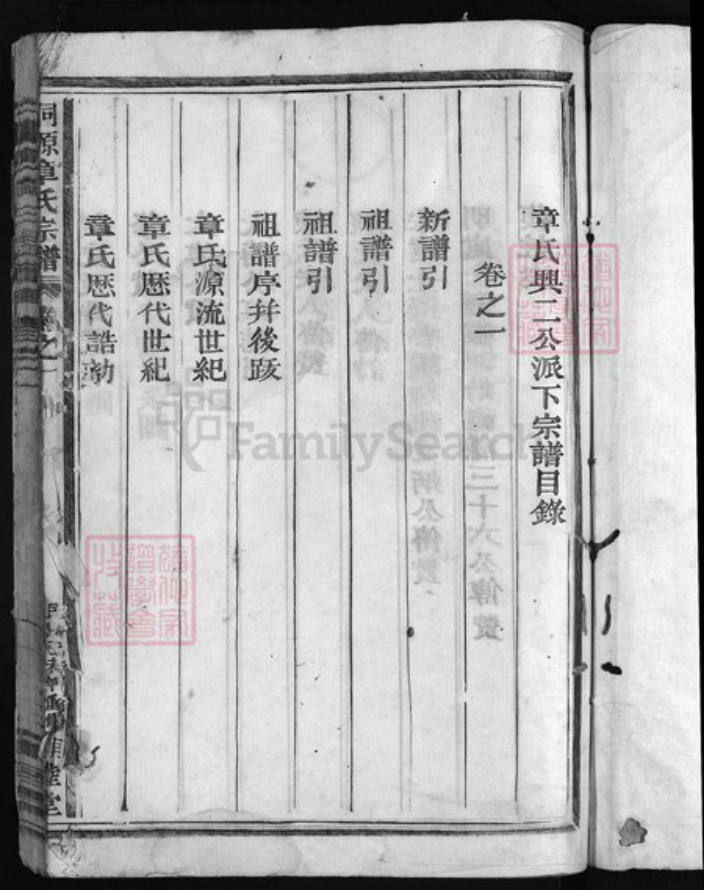 章氏興二公派下宗譜目錄
卷之一
新譜引
祖譜引
祖譜引
祖譜序幷後跋
章氏源流世紀
章氏歷代世紀
章氏歷代誥勅
源章氏宗譜
卷之一
FamilySearch